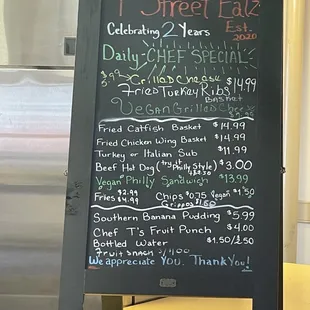 T Street Eatz
Celebrating 2 Years
Est. 2020
Daily CHEF SPECIAL
Grilled Cheese
Fried Turkey Ribs $14.99
Basket
Vegan Grilled Cheese
Fried Catfish Basket $14.99
Fried Chicken Wing Basket $14.99
Turkey or Italian Sub $11.99
Beef Hot Dog (try it Philly Style) $3.00
Vegan Philly Sandwich $13.99
Fries $2.99 $4.99 Chips $0.75 Vegan $1.50
Southern Banana Pudding $5.99
Chef T's Fruit Punch $4.00
Bottled Water $1.50/2.50
Fruit Snack $1.00
We appreciate You. Thank You!